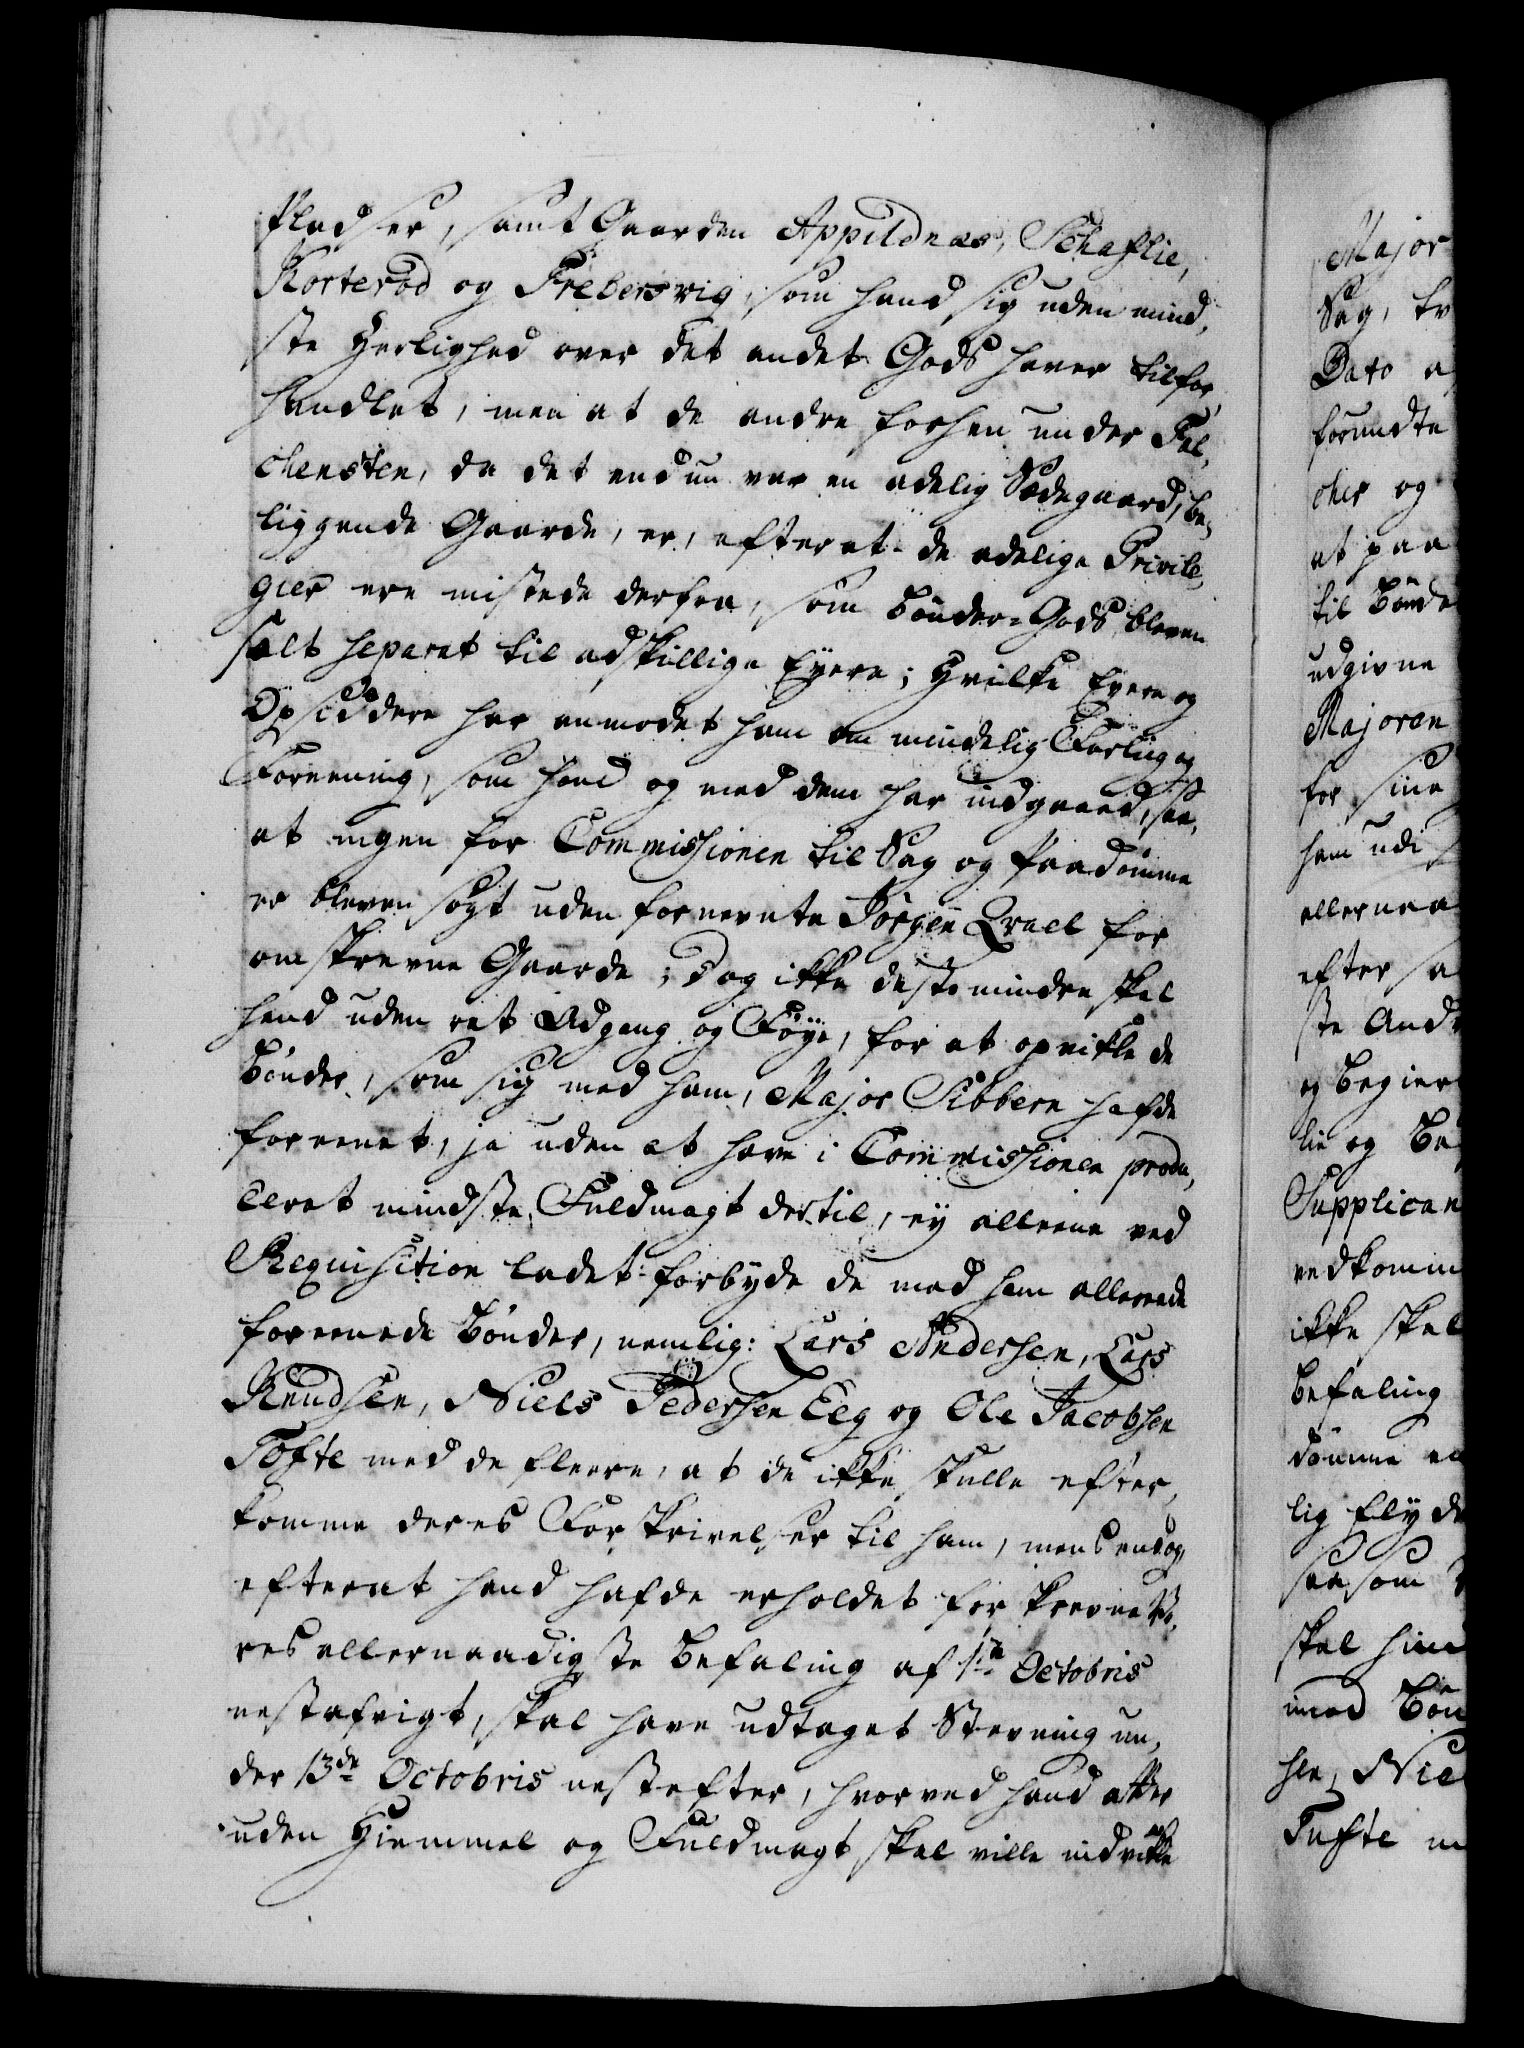 Pladser, samt Gaarden Appildnæs, Schaflie,
Korterød og Frebersvig, som hand sig uden mind,
ste Herlighed over det andet Gods haver tilfor,
handlet, men at de andre forhen under Fal,
chensten, da det endnu var en adelig Sædegaard, be,
liggende Gaarde, er, efterat de adelige Privile,
gier ere mistede derfra, som Bønder-Gods bleven
solt separat til adskillige Eyere; hvilke Eyere og
Opsiddere har anmodet ham om mindelig Forlig og
Foreening, som hand og med dem har indgaaed, saa,
at ingen for Commissionen til Sag og Paadømme
er bleven søgt uden fornevnte Jørgen Qvael for
omskrevne Gaarde; Dog ikke destomindre skal
hand uden ret Adgang og Føye, for at opvikle de
Bønder, som sig med ham, Major Sibbern hafde
foreenet, ja uden at have i Commissionen produ,
ceret mindste Fuldmagt dertil, ey alleene ved
Requisition ladet forbyde de med ham allereede
foreenede Bønder, nemlig: Lars Andersen, Lars
Knudsen, Niels Pedersen Eeg og Ole Jacobsen
Tofte med de fleere, at de ikke skulle efter,
komme deres Forskrivelser til ham, mens endog,
efterat hand hafde erholdet forskrevne Vo,
res allernaadigste Befaling af 1te Octobris
nestafvigt, skal have udtaget Stevning un,
der 13de Octobris nestefter, hvorved hand atter
uden Hiemmel og Fuldmagt skal ville indvikle
Major
Sag,
Dato
forundte
cher og
at paa
til Bønde
udgivne
Majoren
for sine
ham udi
allernaa
efter
ste And
og begier
lie og Be
Supplican
vedkomm
ikke skal
Befaling
dømme
lig flyde
saasom
skal hand
imod Bøn
sen, Nie
Tufte